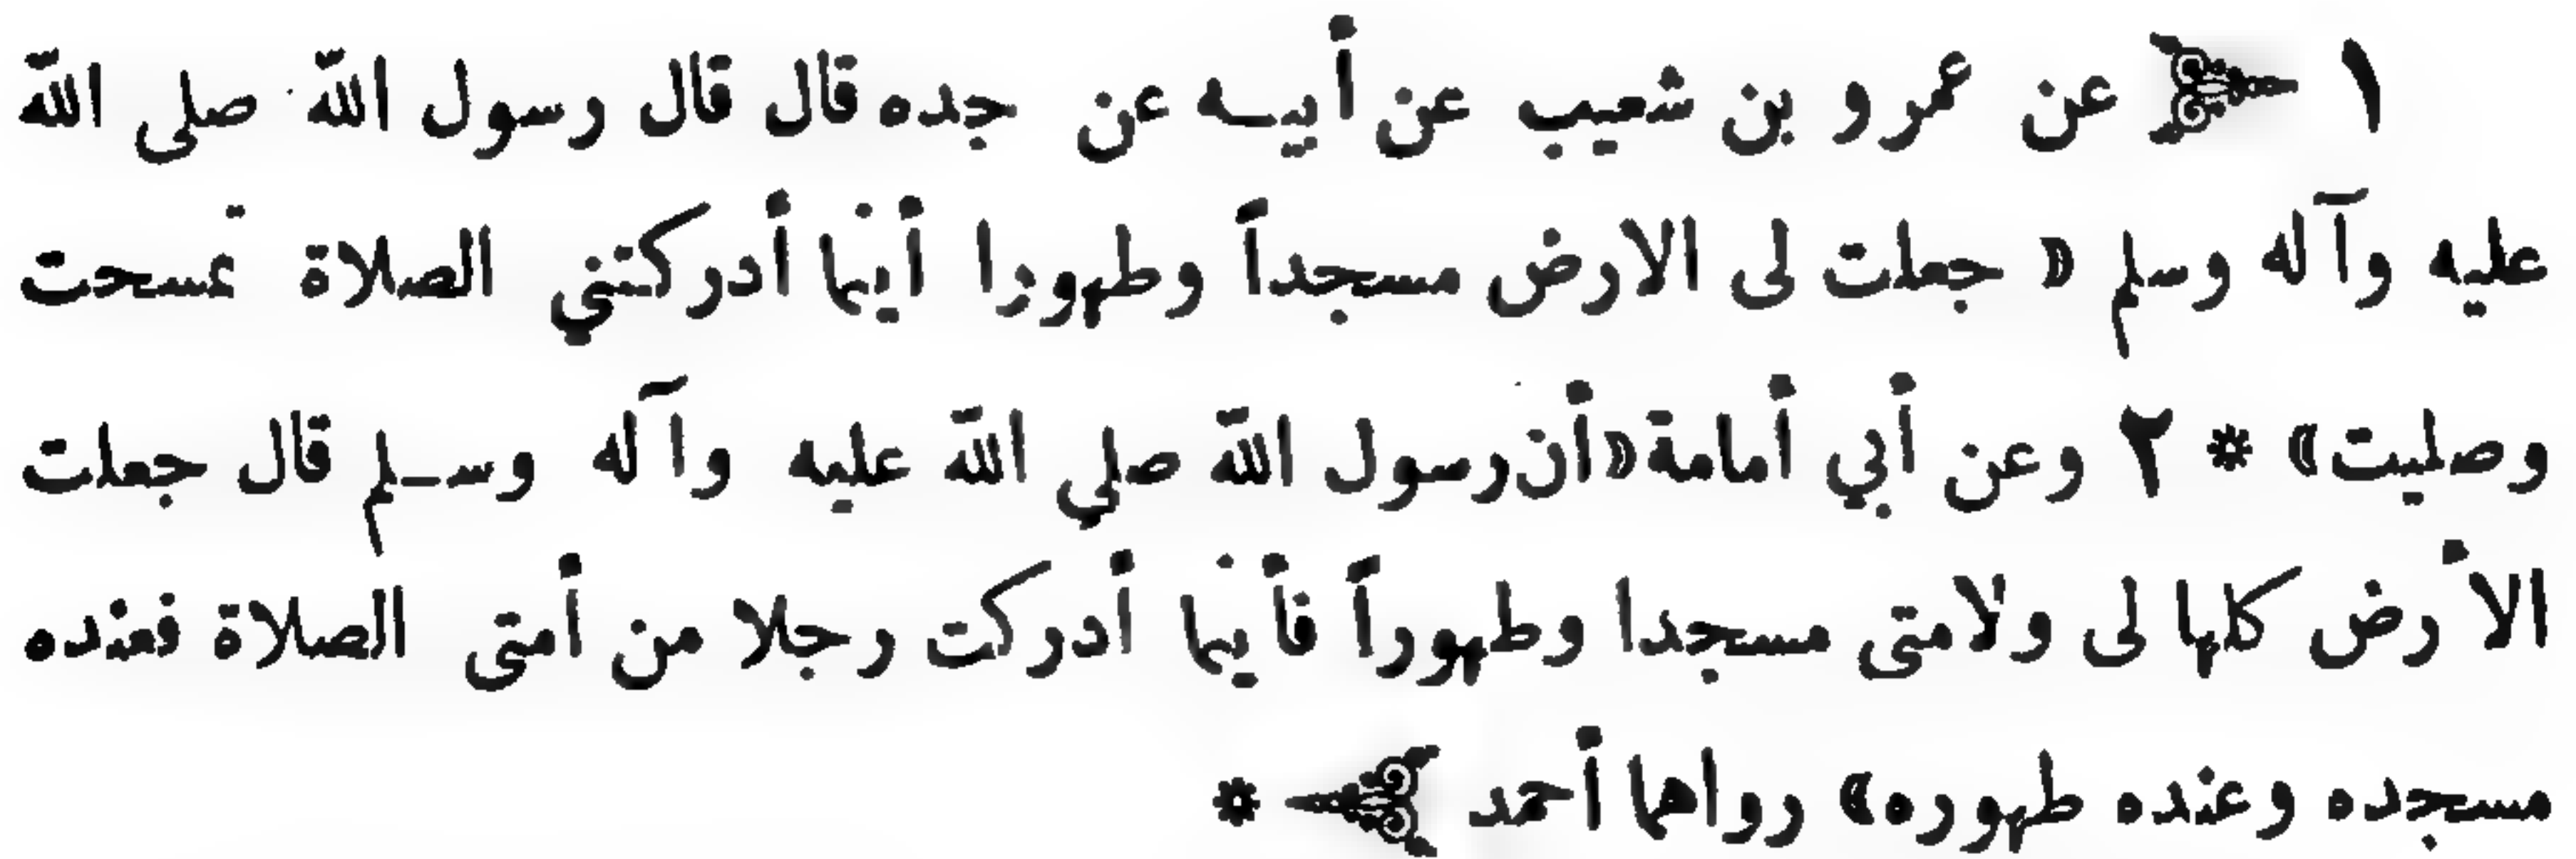 ١ ﴿ عن عمرو بن شعيب عن أبيــه عن جده قال قال رسول اللّه صلى اللّه
عليه وآله وسلم « جعلت لى الارض مسجداً وطهورا أينما أدركتني الصلاة تمسحت
وصليت» * ٢ وعن أبي أمامة «أن رسول اللّه صلي اللّه عليه وآله وســلم قال جعلت
الأرض كلها لى ولامتى مسجدا وطهوراً فأينما أدركت رجلا من أمتى الصلاة فعنده
مسجده وعنده طهوره» رواهما أحمد ﴾ *